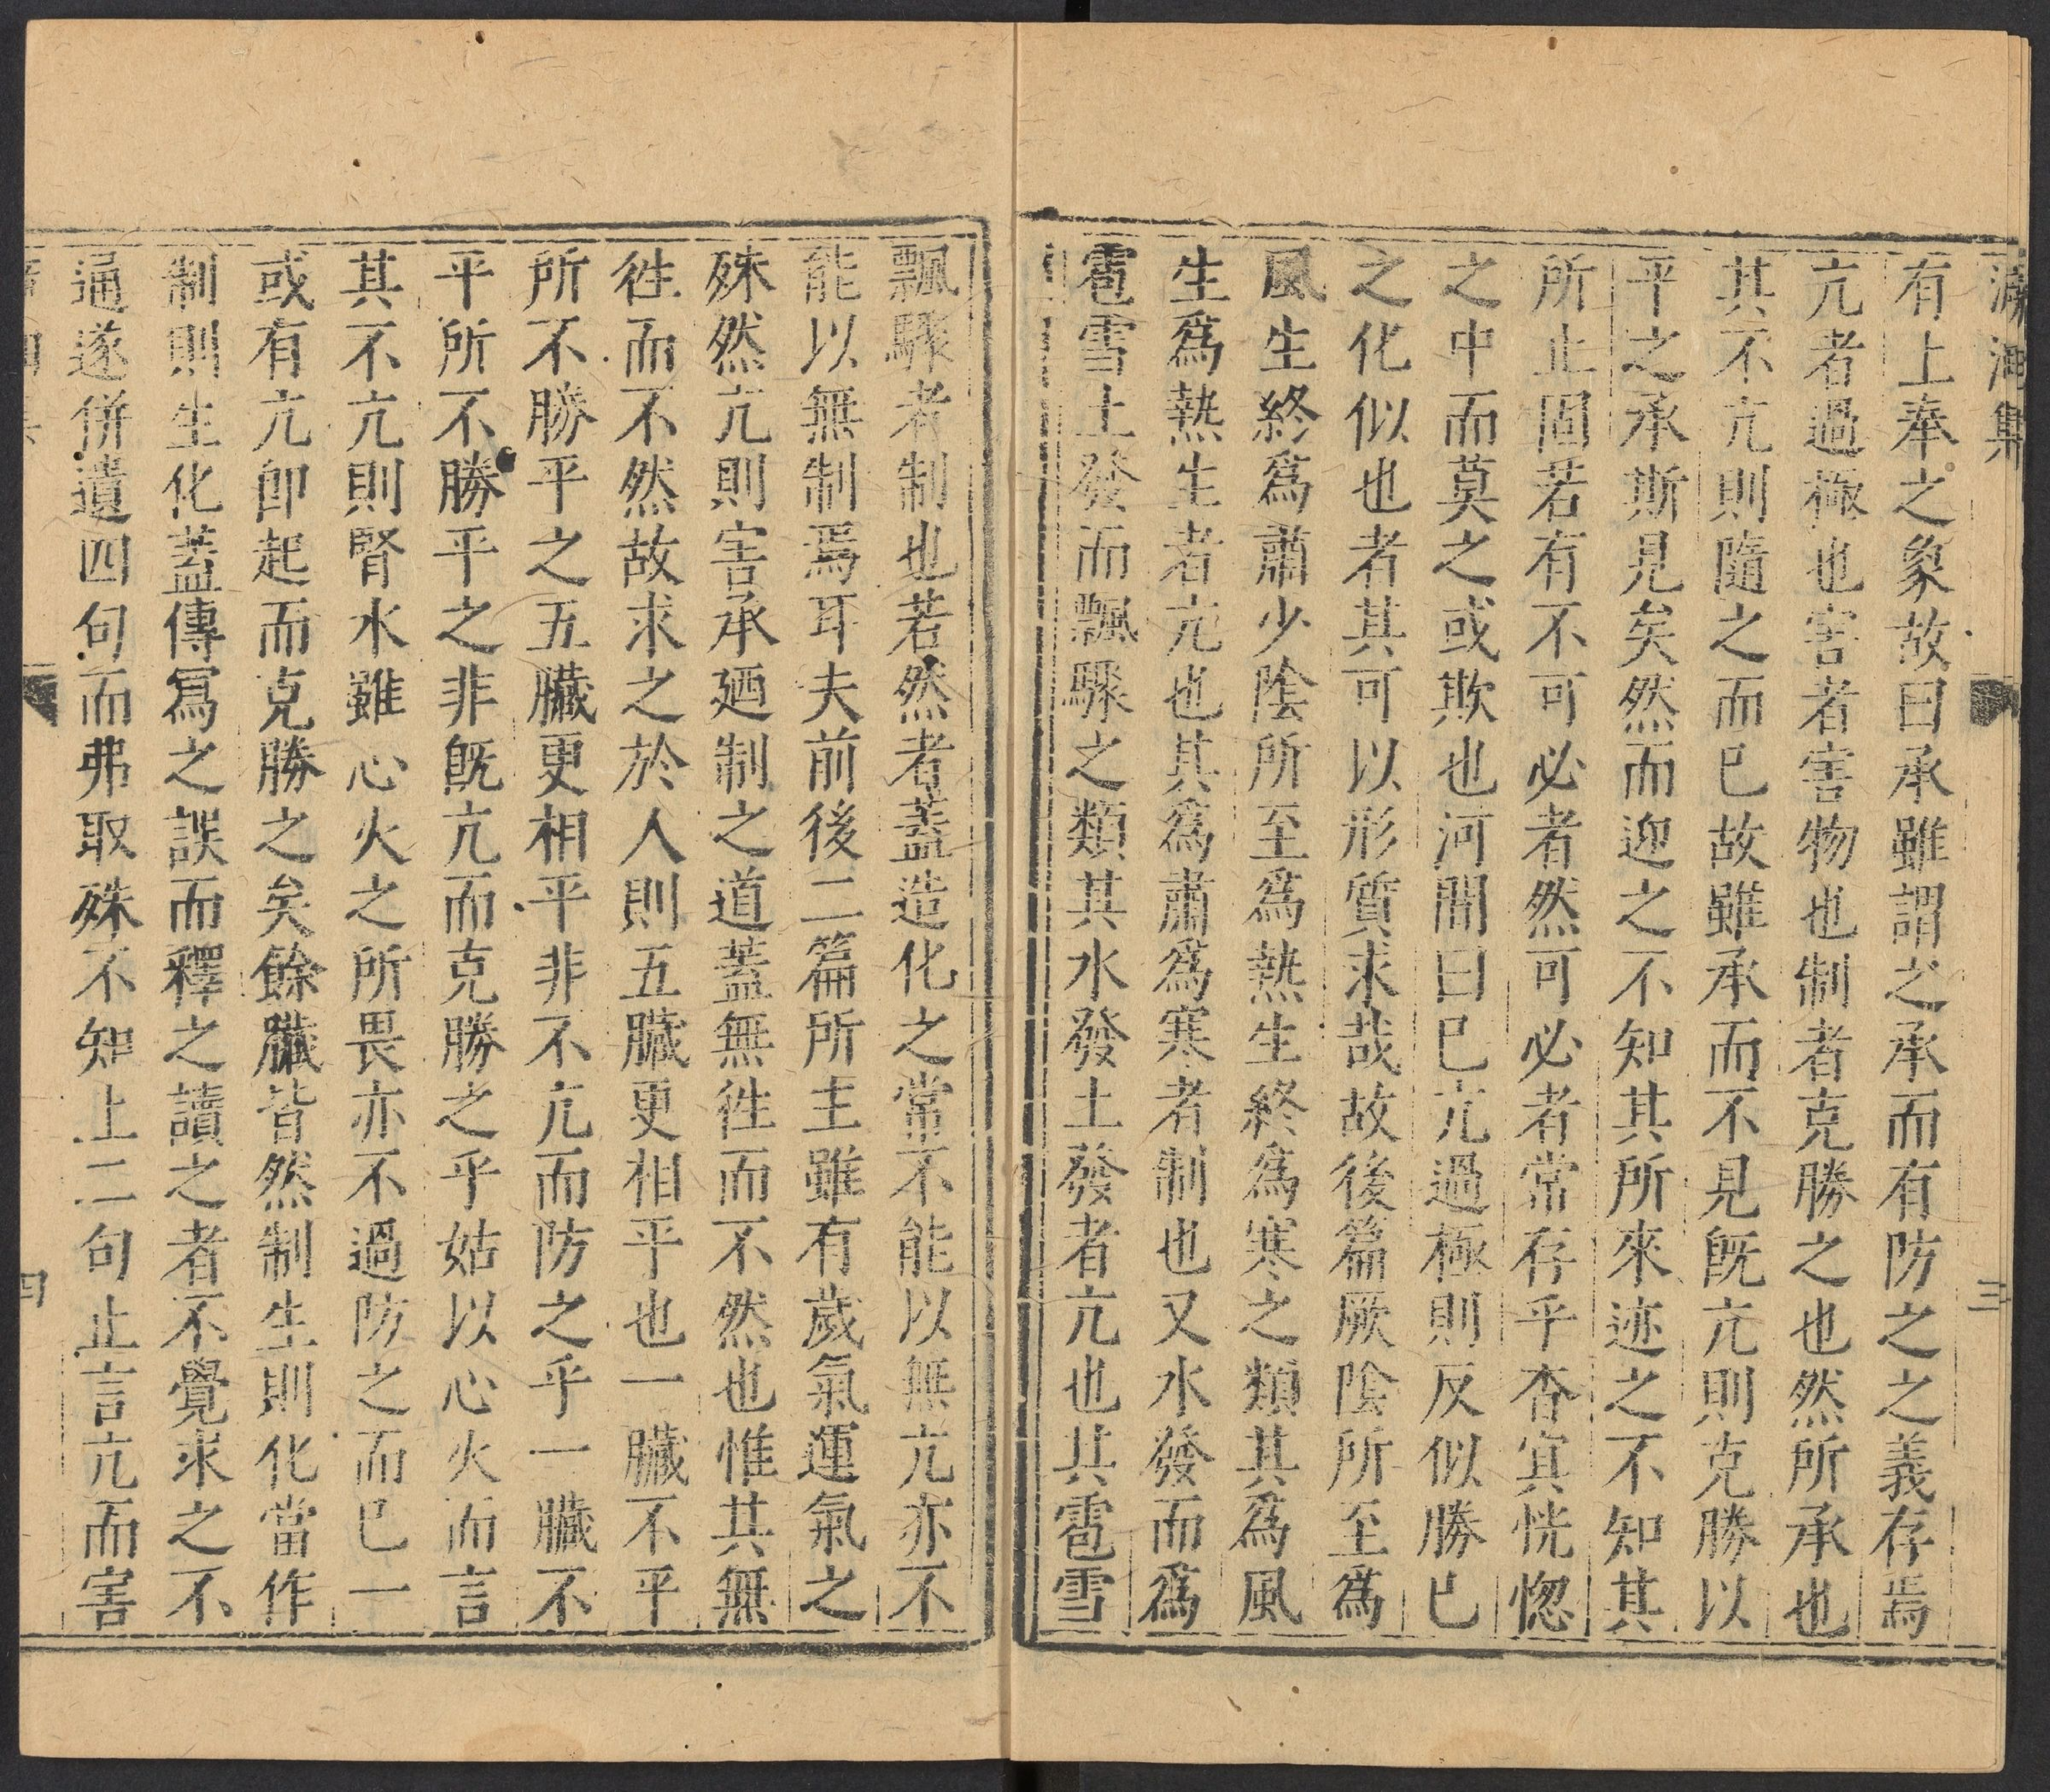 溯洄集
三
有上奉之象故曰承雖謂之承而有防之之義存焉
亢者過極也害者害物也制者克勝之也然所承也
其不亢則隨之而已故雖承而不見既亢則克勝以
平之承斯見矣然而迎之不知其所來迹之不知其
所止固若有不可必者然可必者常存乎杳冥恍惚
之中而莫之或欺也河間曰已亢過極則反似勝已
之化似也者其可以形質求哉故後篇厥陰所至爲
風生終爲肅少陰所至爲熱生終爲寒之類其爲風
生爲熱生者亢也其爲肅爲寒者制也又水發而爲
雹雪土發而飄驟之類其水發土發者亢也其雹雪
飄驟者制也若然者蓋造化之常不能以無亢亦不
能以無制焉耳夫前後二篇所主雖有歲氣運氣之
殊然亢則害承廼制之道蓋無徃而不然也惟其無
徃而不然故求之於人則五臟更相平也一臟不平
所不勝平之五臟更相平非不亢而防之乎一臟不
平所不勝平之非既亢而克勝之乎姑以心火而言
其不亢則腎水雖心火之所畏亦不過防之而已一
或有亢卽起而克勝之矣餘臟皆然制生則化當作
制則生化蓋傳寫之誤而釋之讀之者不覺求之不
通遂併遺四句而弗取殊不知上二句止言亢而害
四